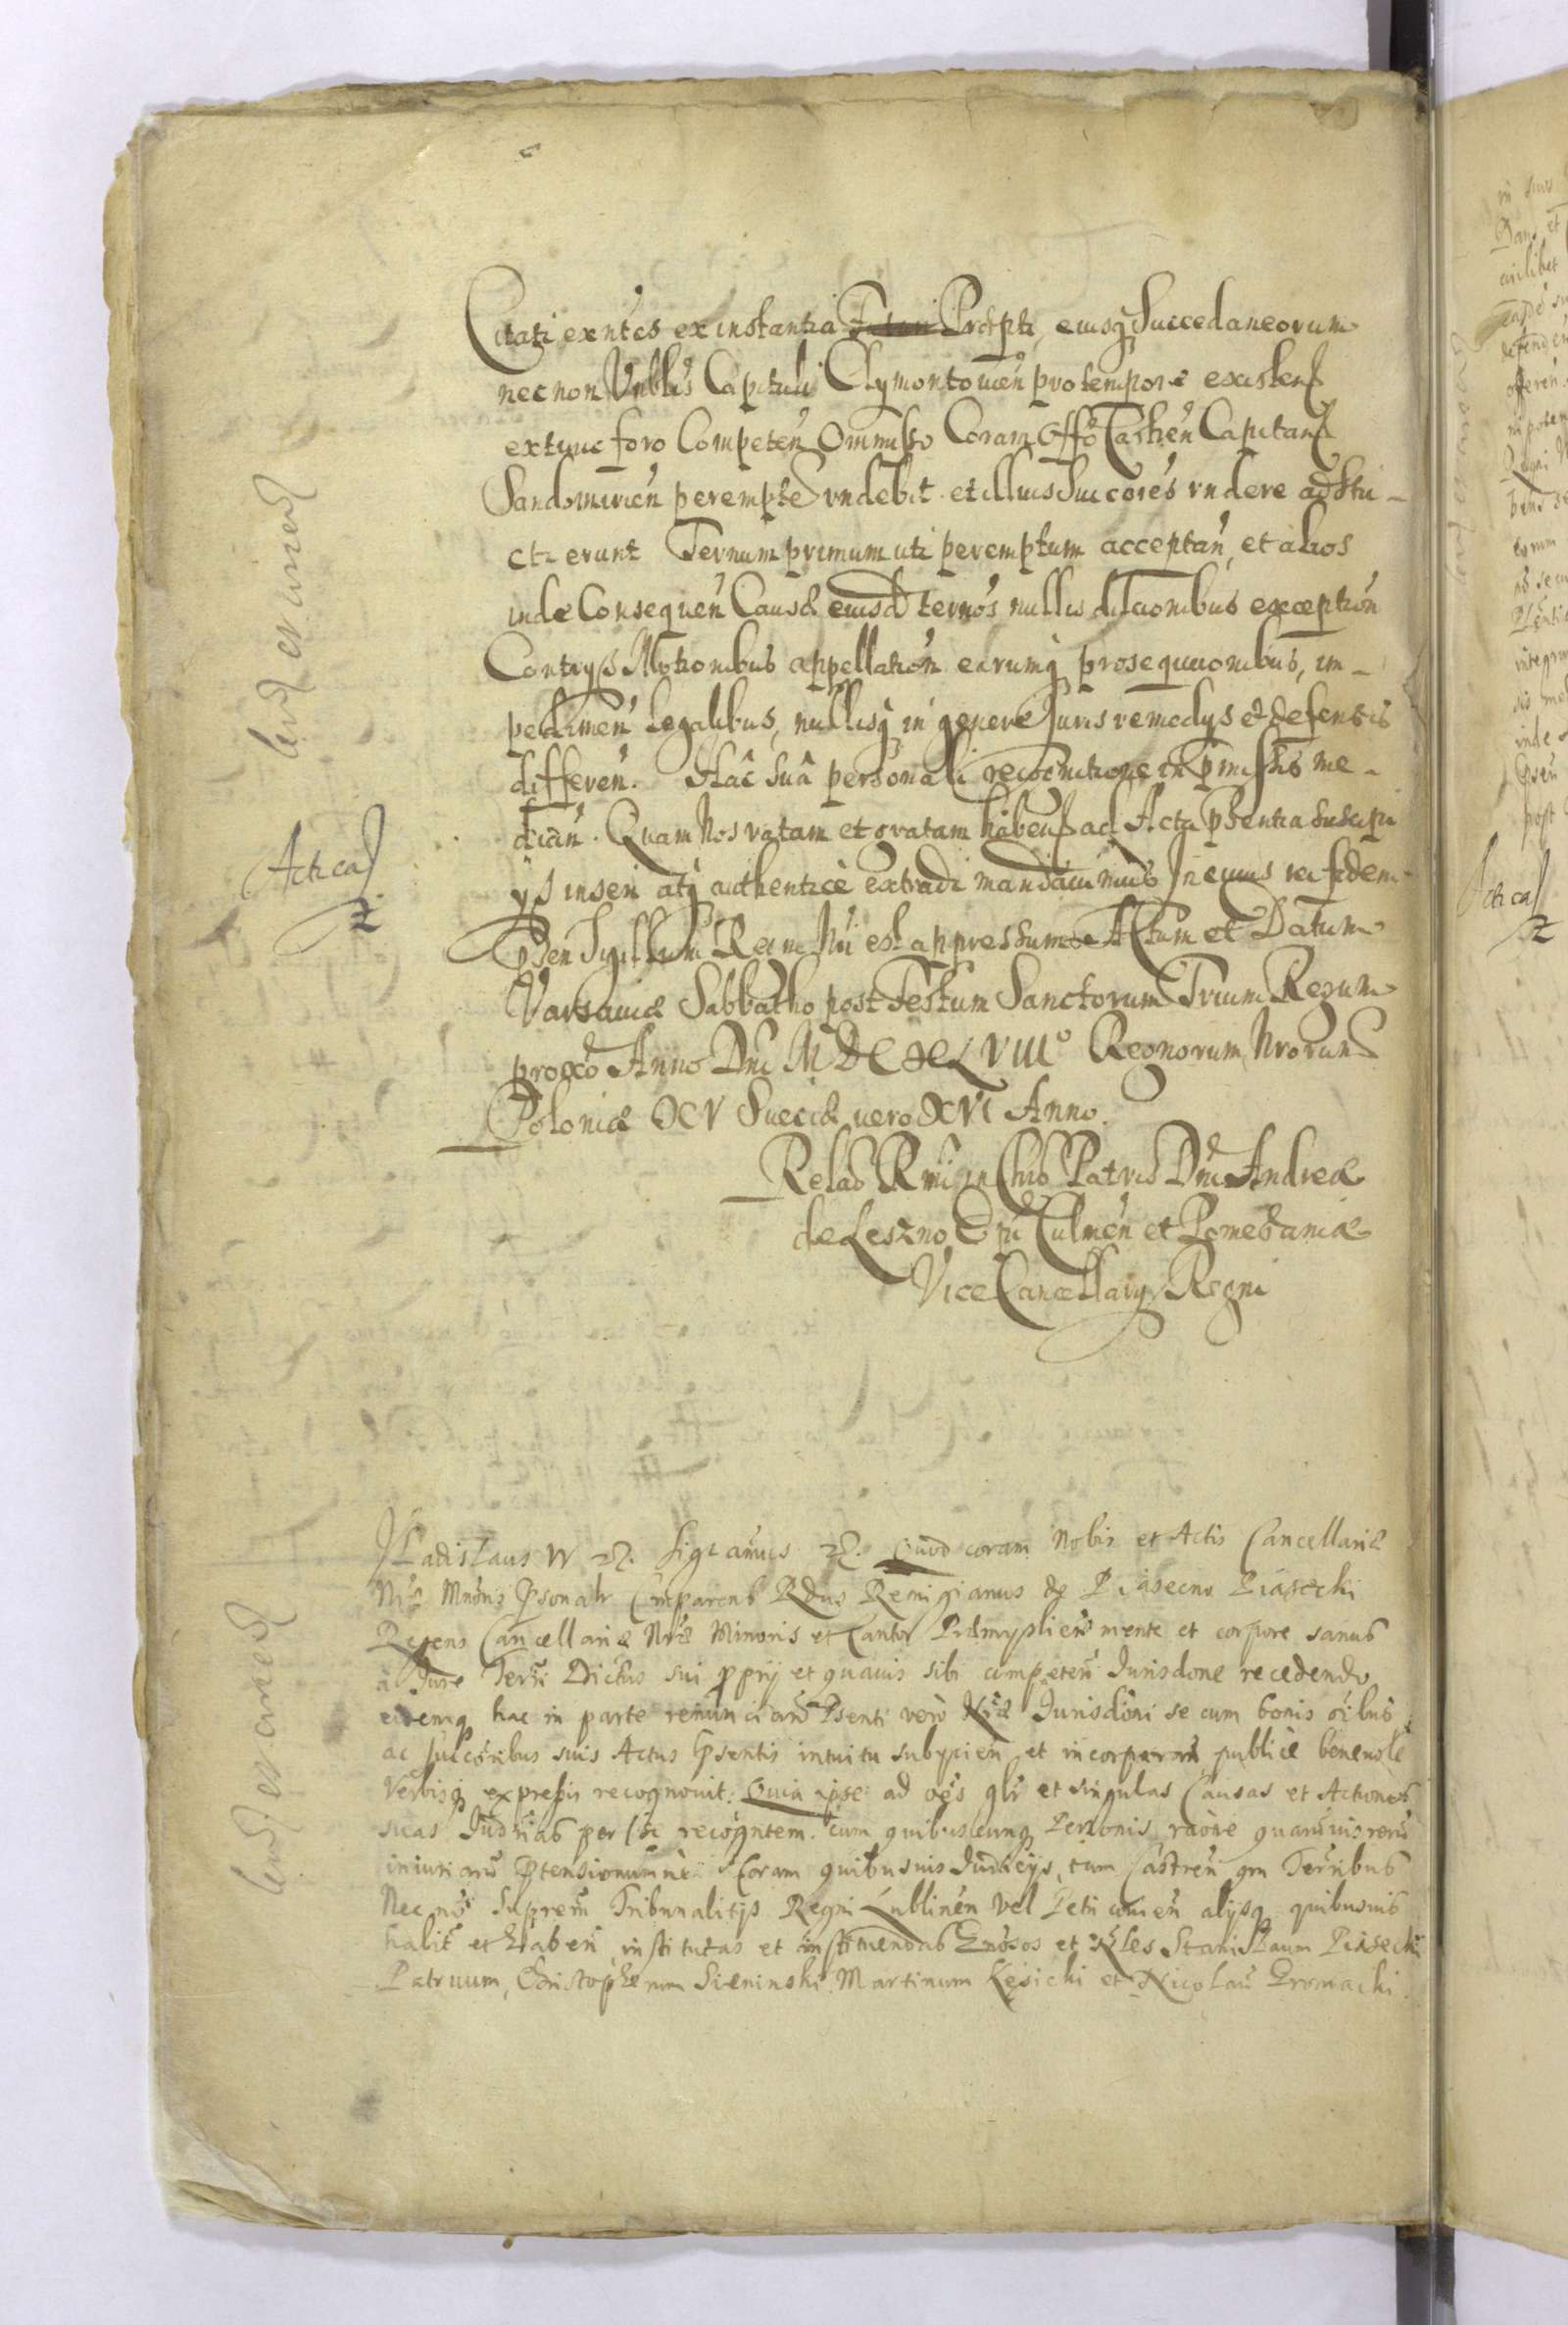 Citati exntes ex instantia Prdpti, eiusq Succedaneorum
nec non Vnblis Capituli Clymontouien pro tempore existen
extunc foro Competen Ommisso Coram Offo Castren Capitan
Sandomirien perempte rndebit et illius Succores rndere adstri-
cti erunt Ternum primum uti peremptum acceptan, et alios
inde Consequen Causæ eiusd ternos nullis dilaonibus exception
Contrys Motionibus appellation earumq prosequuonibus, im-
pedimen legalibus, nullisq in genere Juris remedys et defensis
differen. Hac suâ personali recognitione in pmissis me-
dian. Quam Nos ratam et gratam haben ad Acta psentia suscipi
ys inseri atq authenticè extradi mandauimus In cuius rei fidem
Psen Sigillum Regni Nri est appressum Actum et Datum
Varsauiæ Sabbatho post Festum Sanctorum Trium Regum
proxo Anno Dni MDCXLVIIIo Regnorum Nrorum
Poloniæ XV Sueciæ uero XVI Anno.
Relao Rmi in Chro Patris Dni Andreæ
de Leszno Epi Culmen et Pomesaniæ
ViceCancellarij Regni
Acticas
Vladislaus IV Significamus Quod coram Nobis et Actis Cancellariæ
Nræ Mnoris Psonatr Comparens Rdus Remigianus de Piaseczno Piasecki
Regens Cancellariæ Nræ Minoris et Cantor Præmyslien mente et corpore sanus
à Jure Terri Dictus sui proprij et quauis sibi competen Jurisdone recedendo
eidemq hac in parte renuncian Psenti verò Nræ Jurisdoni se cum bonis oibus
ac succoribus suis Actus Psentis intuitu subijcien et incorporan publicè beneuole
Verbisq expressis recognouit: Quia ipse ad oes glr et singulas Causas et Actiones
suas Judrias per se recogntem cum quibuscunq Personis raone quaruuis reru
iniuriaru Ptensionumue Coram quibusuis Judicijs, tam Castren qm Terribus
Necno Suprem Tribunalitijs Regni Lublinen vel Petricouien alijsq quibusuis
habit et haben institutas et instituendas Gnosos et Nles Stanislaum Piasecki
Patruum, Christophorum Sieninski Martinum Kęsicki et Nicolau Gromacki